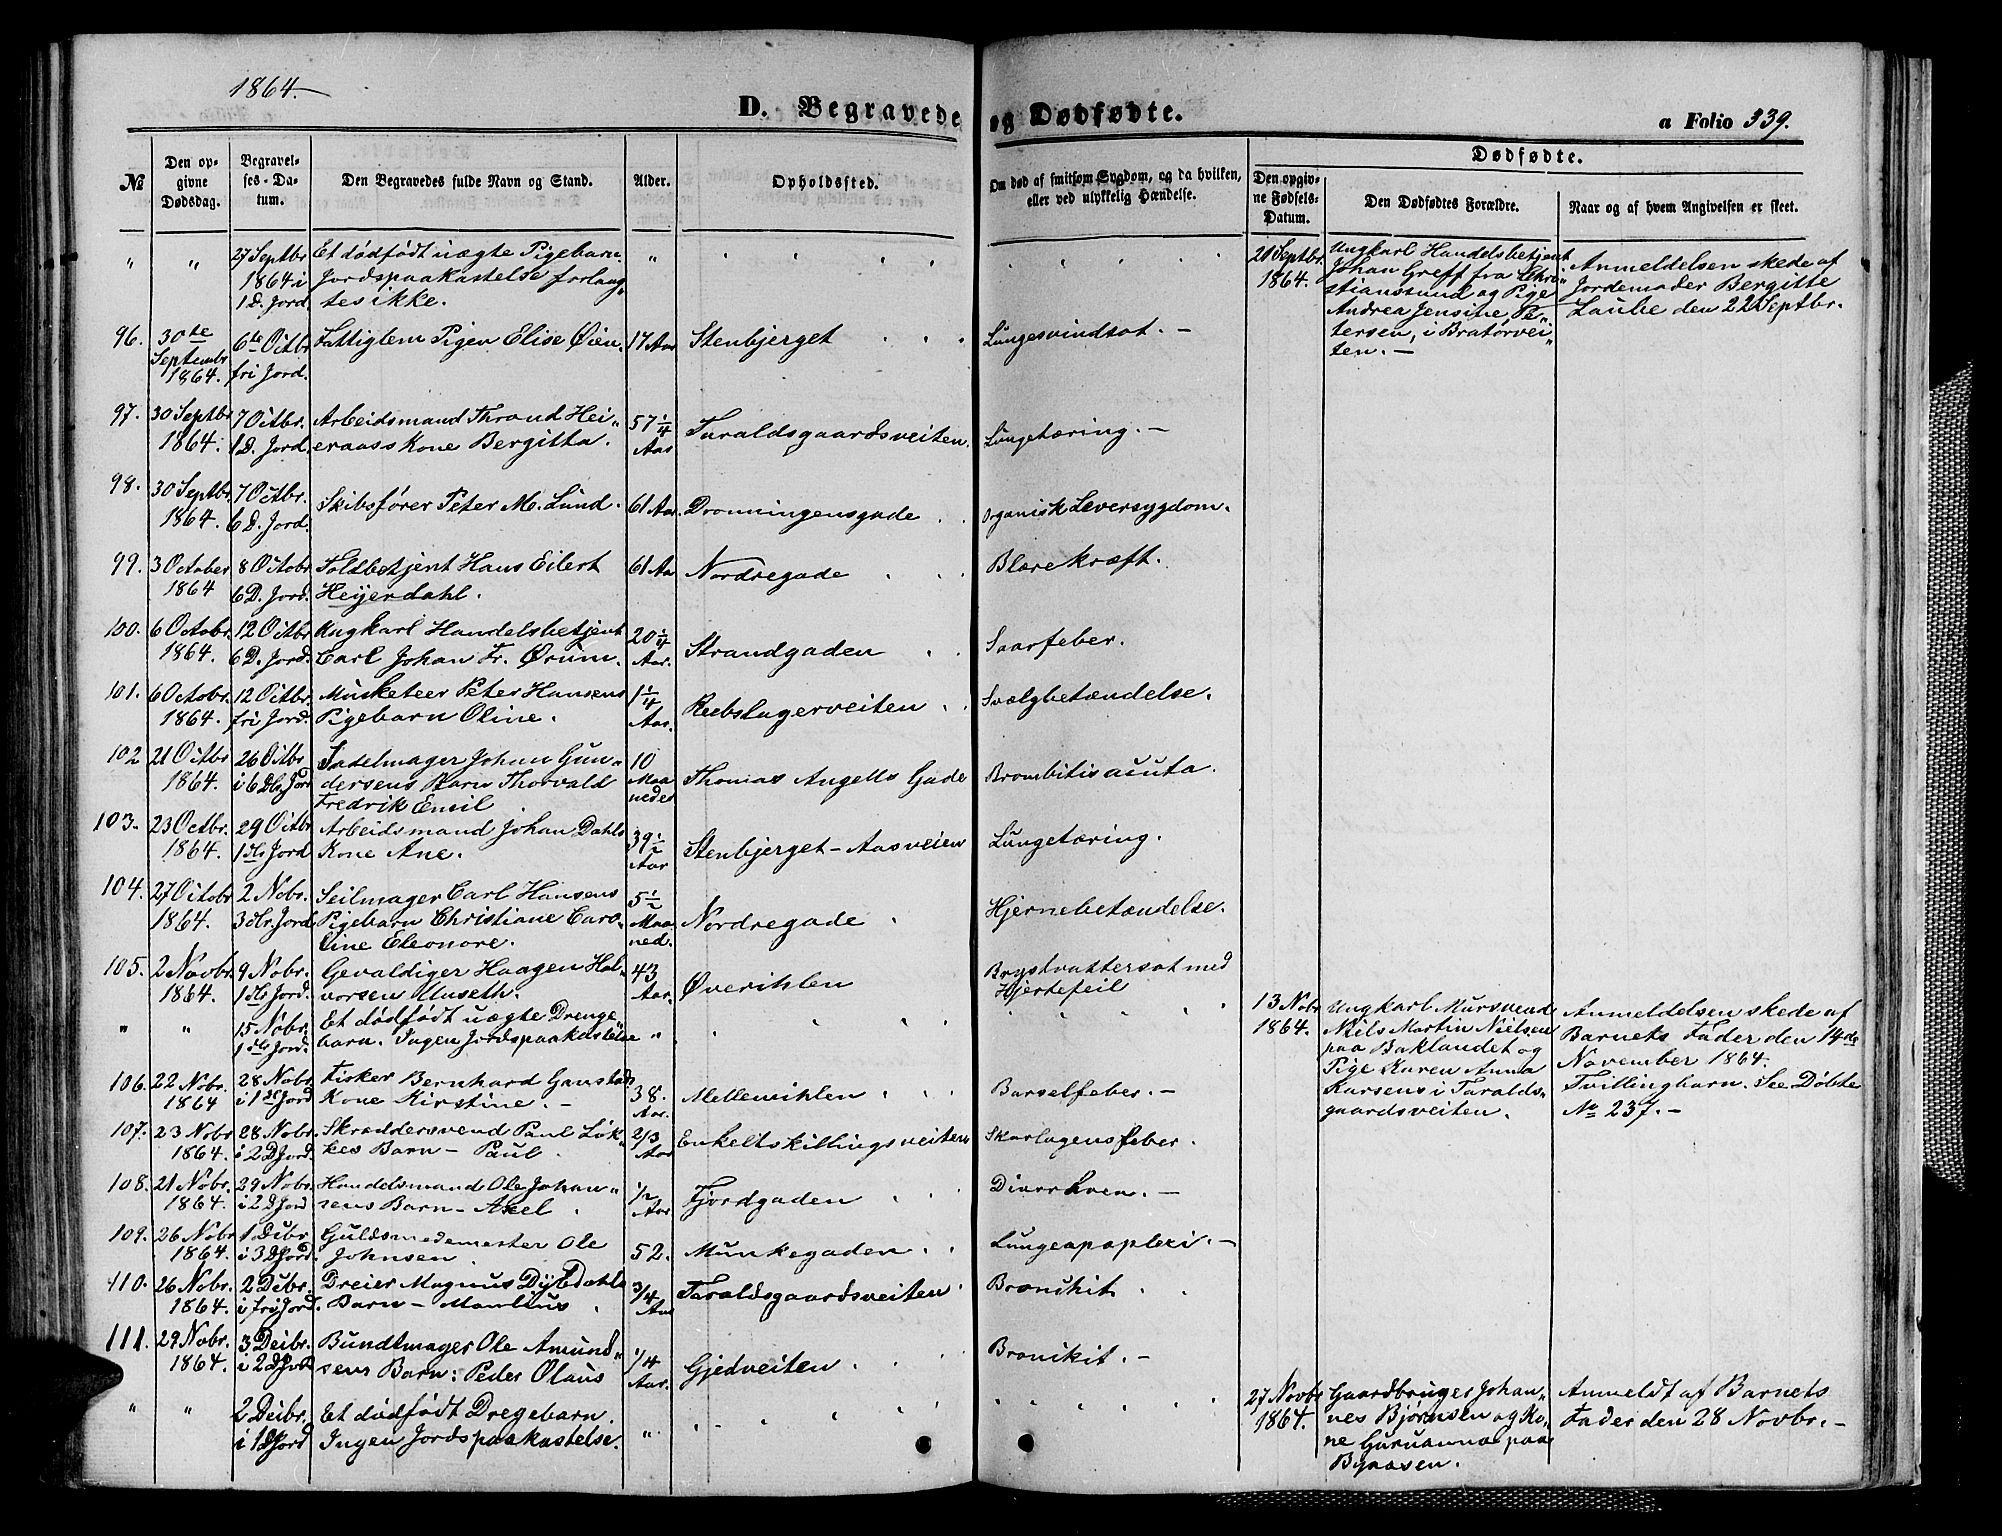 1864.
D. Begravede og Dødfødte.
a Folio 339.
№
Den opgivne Dødsdag.
Begravelses-Datum.
Den Begravedes fulde Navn og Stand.
Alder.
Opholdssted.
Om død af smitsom Sygdom, og da hvilken, eller ved ulykkelig Hændelse.
Dødfødte.
Den opgivne Fødsels-Datum.
Den Dødfødtes Forældre.
Naar og af hvem Angivelsen er skeet.
" " 27 Septbr 1864 i 1 D. Jord
Et dødfødt uægte Pigebarn
Jordspaakastelse forlang-
tes ikke.
"
21 Septbr 1864.
Ungkarl Handelsbetjent
Johan Greff fra Chri-
stianssund og Pige
Andrea Jensine Pe-
tersen, i Bratørvei-
ten. —
Anmeldelsen skede af
Jordemoder Bergitte
Laube den 22 Septbr.
96. 30te Septembr 1864. 6te Octbr fri Jord.
Fattiglem Pigen Elise Øien
17 Aar
Stenbjerget
Lungesvindsot. —
97. 30 Septbr 1864. 7 Octbr. 1 D. Jord.
Arbeidsmand Thrond Hei-
eraass Kone Bergitta.
57 1/4 Aar
Taraldsgaardsveiten.
Lungetæring. —
98. 30 Septbr 1864. 7 Octbr. 6 D. Jord.
Skibsfører Peter M. Lund.
61 Aar.
Dronningensgade
Organisk Leversygdom.
99. 3 October 1864 8 Octobr 6 D. Jord.
Toldbetjent Hans Eilert
Heyerdahl.
61 Aar
Nordregade
Blærekræft.
100. 6 Octobr. 1864. 12 Octbr 6 D. Jord.
Ungkarl Handelsbetjent
Carl Johan Fr. Ørum.
20 1/4 Aar.
Strandgaden
Saarfeber.
101. 6 Octobr. 1864. 12 Octbr. fri Jord.
Musketeer Peter Hansens
Pigebarn Oline.
1 1/4 Aar.
Rebslagerveiten
Svælgbetændelse.
102 21 Octbr 1864. 26 Octbr i 6 Dls Jord
Sadelmager Johan Gun-
dersens Barn Thorvald
Fredrik Emil
10 Maanedes
Thomas Angells Gade
Bronchitis acuta.
103. 23 Octbr. 1864. 29 Octbr 1 dls Jord
Arbeidsmand Johan Dahls
Kone Ane.
39 1/2 Aar
Stenbjerget - Aasveien
Lungetæring.
104. 27 Octobr 1864. 2 Nobr. 3 dlr. Jord
Seilmager Carl Hansens
Pigebarn Christiane Caro-
line Eleonore.
5 1/2 Maaned.
Nordregade
Hjernebetændelse.
105. 2 Novbr. 1864. 9 Nobr. 1 dls Jord.
Gevaldiger Haagen Hal-
vorsen Museth.
43 Aar.
Øverihlen
Brystvattersot med
Hjertefeil
" " 15 Nobr. 1 dls Jord.
Et dødfødt uægte Drenge-
barn. Ingen Jordspaakastelse
"
13 Nobr 1864.
Ungkarl Mursvend
Niels Martin Nielsen
paa Baklandet og
Pige Karen Anna
Larsens i Taralds-
gaardsveiten.
Anmeldelsen skede af
Barnets Fader den 14de
November 1864.
Tvillingbarn. See Døbte
No 237. —
106. 22 Nobr. 1864 28 Nobr i 1 D Jord
Fisker Bernhard Ganstads
Kone Kirstine. —
38. Aar.
Mellemihlen
Barselfeber. —
107. 23 Nobr 1864. 28 Nobr. i 2 D Jord.
Skræddersvend Paul Løk-
kes Barn — Paul.
2/3 Aar
Enkeltskillingsveiten
Skarlagensfeber.
108. 21 Nobr. 1864. 29 Nobr. i 2 D Jord
Handelsmand Ole Johan-
sens Barn — Axel
1/2 Aar
Fjordgaden
Diarrhoen. —
109. 26 Nobr 1864. 1 Decbr i 3 D Jord.
Guldsmedemester Ole
Johnsen
52.
Munkegaden
Lungeapoplexi. —
110. 26 Nobr. 1864. 2 Decbr. i fri Jord.
Dreier Magnus Dybdahls
Barn — Manlius
3/4 Aar
Taraldsgaardsveiten
Bronikit
111. 29 Nobr. 1864. 3 Decbr. i 2 D Jord
Bundtmager Ole Amund-
sens Barn: Peder Olaus
1/4 Aar.
Gjedveiten
Bronikit. —
" " 2 Decbr. i 1 D Jord
Et dødfødt Dregebarn.
Ingen Jordspaakastelse.
"
27 Novbr 1864.
Gaardbruger Johan-
nes Bjørnsen og Ko-
ne Guruanna paa
Byaasen.
Anmeldt af Barnets
Fader den 28 Novbr. —